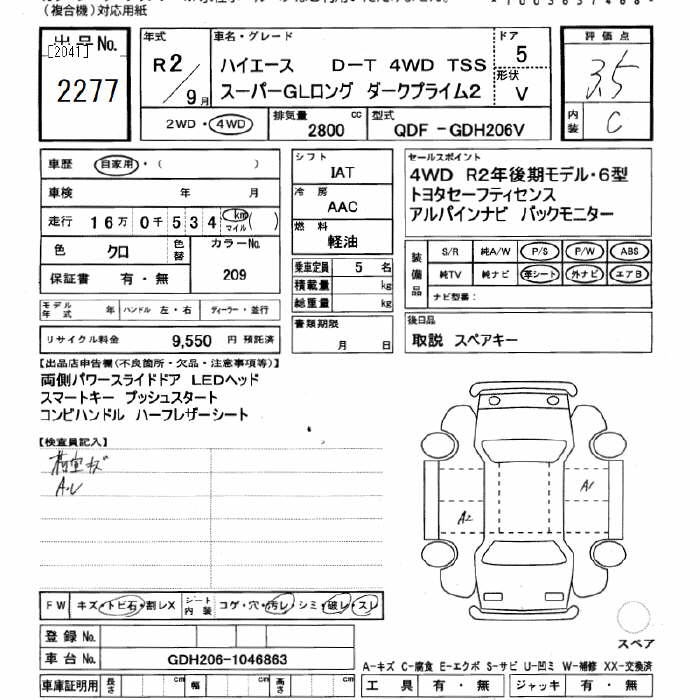 (複合機)対応用紙
出品No.
[2041]
2277
年式
R2/9月
車名・グレード
ハイエース D-T 4WD TSS
スーパーGLロング ダークプライム2
ドア
5
形状
V
評価点
3.5
内装
C
2WD・4WD
排気量
2800 cc
型式
QDF -GDH206V
車歴
自家用・( )
車検 年 月
走行 16万 0千 5 3 4 km マイル ( )
色 クロ
色替
カラーNo.
209
保証書 有・無
モデル年式 年
ハンドル 左・右
ディーラー・並行
リサイクル料金 9,550 円 預託済
シフト
IAT
冷房
AAC
燃料
軽油
乗車定員 5 名
積載量 kg
総重量 kg
書類期限
月 日
セールスポイント
4WD R2年後期モデル・6型
トヨタセーフティセンス
アルパインナビ バックモニター
装備品
S/R 純A/W P/S P/W ABS
純TV 純ナビ 革シート 外ナビ エアB
ナビ型番:
後日品
取説 スペアキー
【出品店申告欄(不良箇所・欠品・注意事項等)】
両側パワースライドドア LEDヘッド
スマートキー プッシュスタート
コンビハンドル ハーフレザーシート
【検査員記入】
A・U
A1
A2
FW キズ・トビ石・割レX
シート内装 コゲ・穴・汚レ・シミ・破レ・スレ
登録No.
車台No. GDH206-1046863
スペア
A-キズ C-腐食 E-エクボ S-サビ U-凹ミ W-補修 XX-交換済
車庫証明用 長さ cm 幅 cm 高さ cm
工具 有・無 ジャッキ 有・無